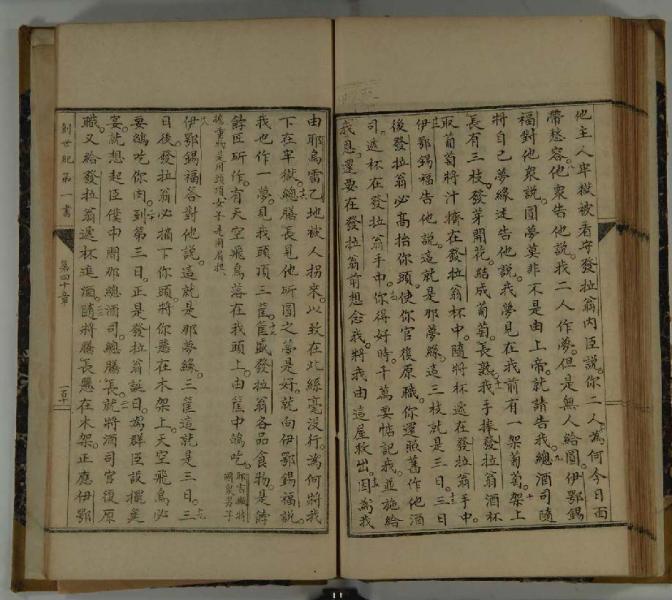 他主人牢獄被看守發拉翁內臣說。你二人為何今日面
帶愁容。他衆告他說。我二人作夢。但是無人給圓。伊鄂錫
福對他衆說。圓夢莫非不是由上帝。就請告我。總酒司隨
將自己夢緣述告他說。我夢見在我前有一架葡萄。架上
長有三枝。發芽開花。結成葡萄。長熟。我手捧發拉翁酒杯
取葡萄將汁擠在發拉翁杯中。隨將杯遞在發拉翁手中。
伊鄂錫福告他說。這就是那夢緣。這三枝就是三日。三日
後發拉翁必高抬你頭。使你官復原職。你還照舊作他酒
司。遞杯在發拉翁手中。你得好時千萬要惦記我。並施給
我恩。還要在發拉翁前想念我。將我由這屋救出。因為我
由耶烏雷乙地被人拐來。以致在此絲毫沒行。為何將我
下在牢獄。總膳長見他所圓之夢是好。就向伊鄂錫福說。
我也作一夢。見我頭頂三筐。筐盛發拉翁各品食物。是餑
餑臣所作。有天空飛鳥落在我頭上。由筐中鴿吃。
伊鄂錫福答對他說。這就是那夢緣。三筐這就是三日。三
日後。發拉翁必摘下你頭。將你懸在木架上。天空飛鳥必
要鴿吃你肉。到第三日。正是發拉翁誕日。為群臣設擺筵
宴。就想起臣僕中間那總酒司。總膳長。就將酒司官復原
職。又給發拉翁遞杯進酒。隨將膳長懸在木架。正應伊鄂
創世紀第一書
第四十章